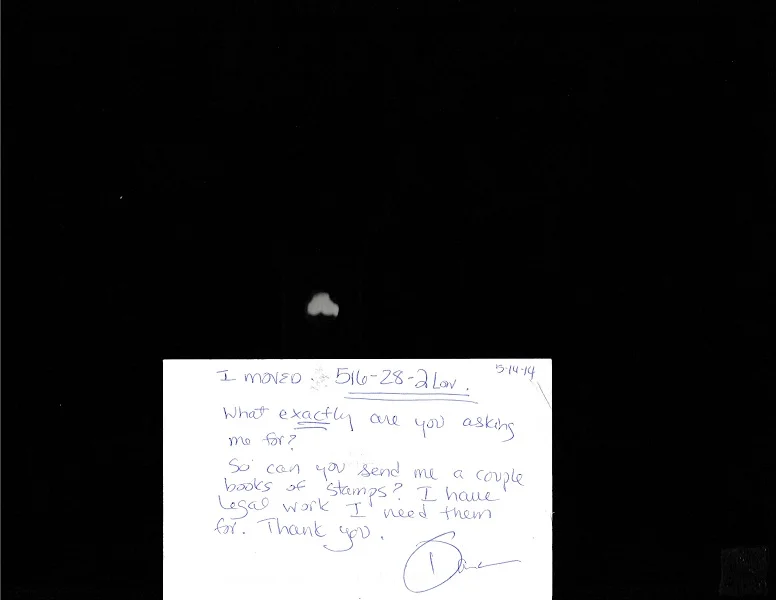 I MOVED. 516-28-2Low.
5-14-14
What exactly are you asking
me for?
So can you send me a couple
books of stamps? I have
legal work I need them
for. Thank you.